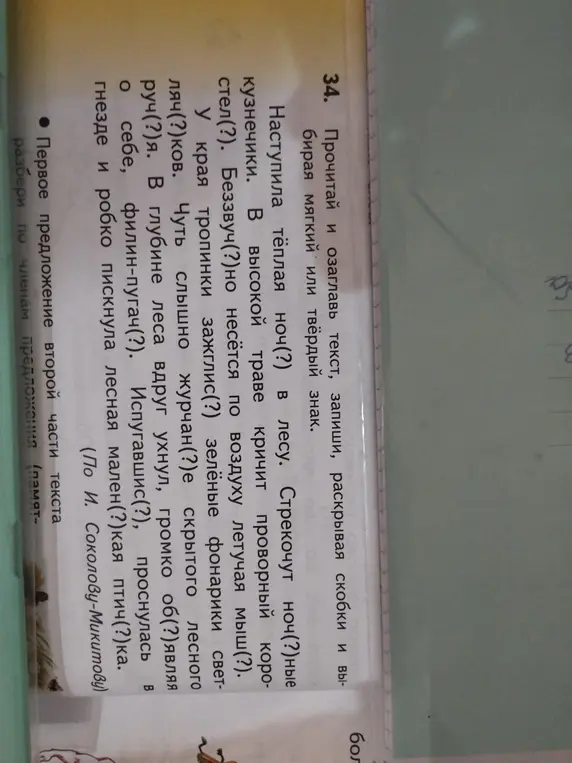 34. Прочитай и озаглавь текст, запиши, раскрывая скобки и вы-
бирая мягкий или твёрдый знак.
Наступила тёплая ноч(?) в лесу. Стрекочут ноч(?)ные
кузнечики. В высокой траве кричит проворный коро-
стел(?). Беззвуч(?)но несётся по воздуху летучая мыш(?).
У края тропинки зажглис(?) зелёные фонарики свет-
ляч(?)ков. Чуть слышно журчан(?)е скрытого лесного
руч(?)я. В глубине леса вдруг ухнул, громко об(?)являя
о себе, филин-пугач(?). Испугавшис(?), проснулась в
гнезде и робко пискнула лесная мален(?)кая птич(?)ка.
(По И. Соколову-Микитову)
● Первое предложение второй части текста
разбери по членам предложения (памят-
бол